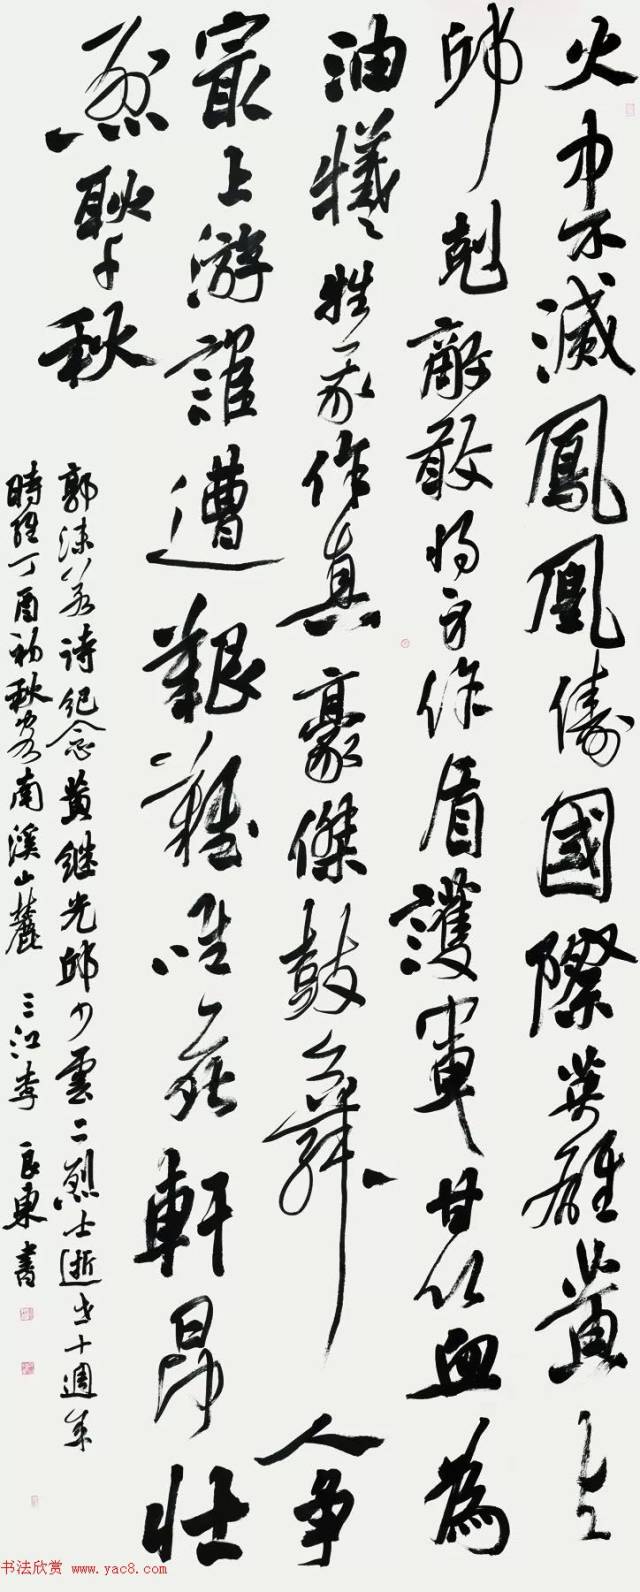 火中不滅鳳凰儔國際英雄黃与
邱剋敵敢將身作盾護軍甘以血為
油犧牲我作真豪傑鼓舞人爭
最上游誰遭艱難唯一死軒昂壯
烈耿千秋
郭沫若詩紀念黃继光邱少雲二烈士逝世十週年
時維丁酉初秋客南溪山麓 三江李良東書
书法欣赏 www.yac8.com